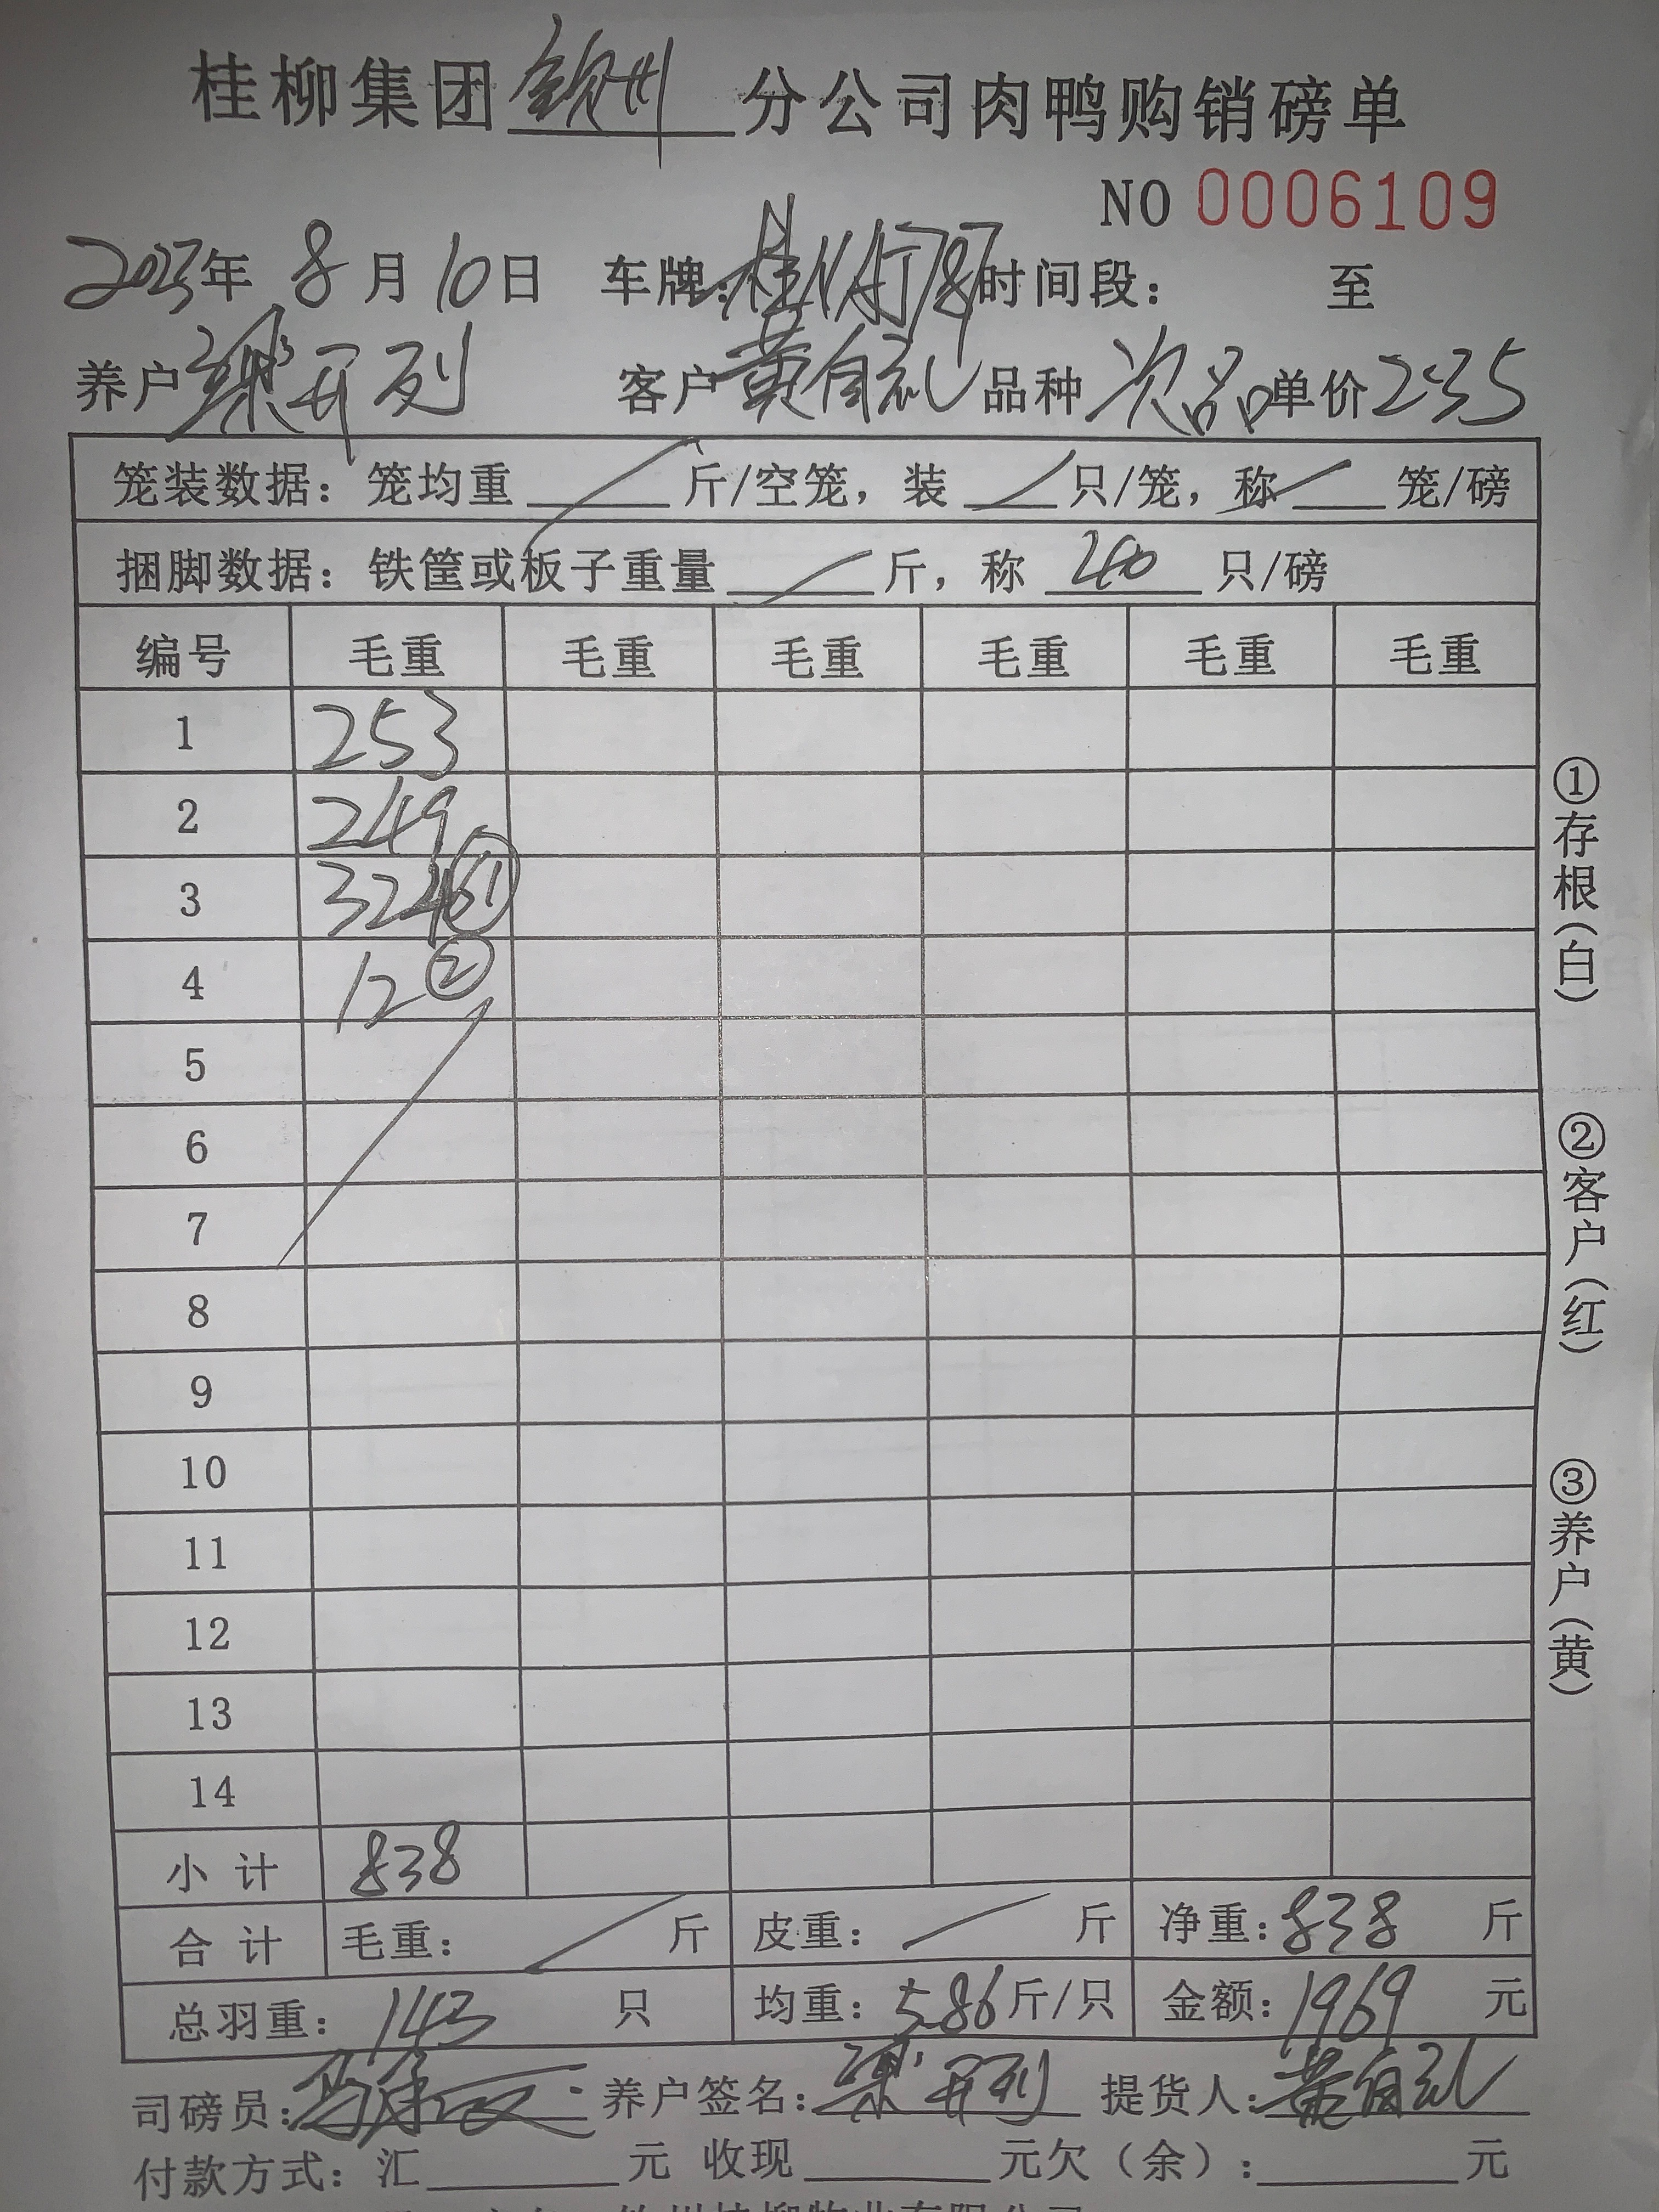 桂柳集团钦州分公司肉鸭购销磅单
NO 0006109
2023年 8月10日 车牌: 时间段： 至
养户 梁开列 客户 黄自礼 品种 次品 单价 2.35
笼装数据：笼均重 斤/空笼，装 只/笼，称 笼/磅
捆脚数据：铁筐或板子重量 斤，称 40 只/磅
编号 毛重 毛重 毛重 毛重 毛重 毛重
1 253
2 249
3 324 61
4 12 ②
5
6
7
8
9
10
11
12
13
14
小计 838
合计 毛重： 斤 皮重： 斤 净重：838 斤
总羽重：143 只 均重：5.86斤/只 金额：1969 元
司磅员： 养户签名：梁开列 提货人：黄自礼
付款方式：汇 元 收现 元欠（余）： 元
①存根（白）
②客户（红）
③养户（黄）